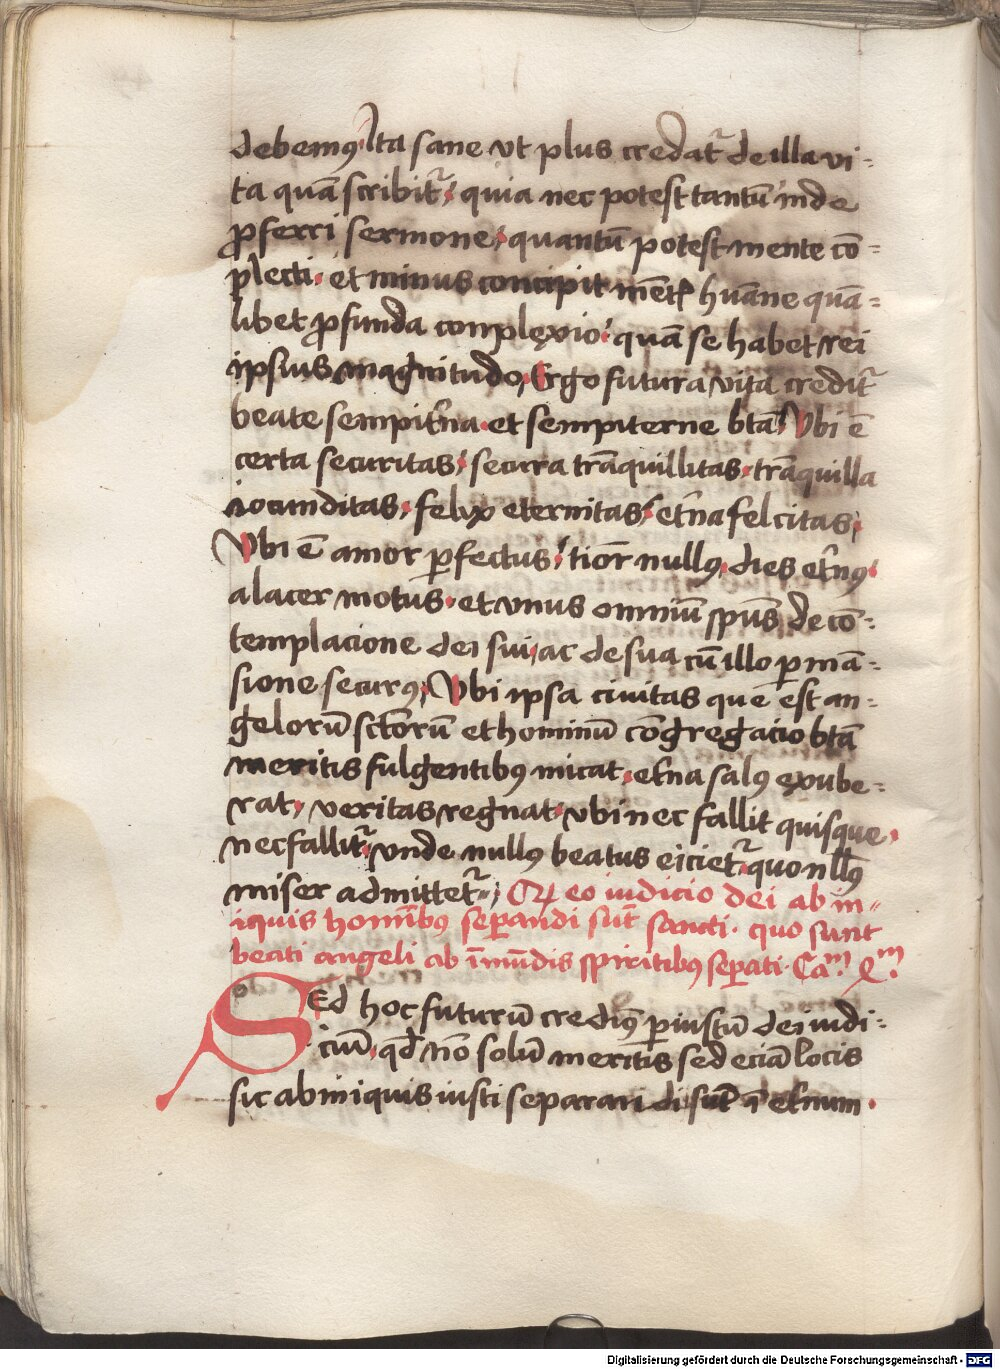 debemꝯ Ita sane vt plus credat᷑ de illa vi-
ta quā scribit᷑, quia nec potest tantū inde
ꝓferri sermone, quantū potest mente cō-
plecti. et minus concipit mēt᷑ hūane quā-
libet ꝓfunda complexio. quā se habet rei
ipsius magnitudo, Ergo futura vita credit᷑
beate sempit̄na. et sempiterne btā Vbi ē
certa securitas, secura trāquillitas. trāquilla
iocunditas, felix eternitas, et̄na felcitas,
Vbi ē amor ꝑfectus, tīor nullꝯ, dies et̄nꝯ
alacer motus. et vnus omniū sp̄us de cō-
templacione dei sui, ac de sua cū illo ꝑmā-
sione securꝯ, Vbi ipsa ciuitas que est an-
gelorū sctōrū et hominū cōgregacio btā
meritis fulgentibꝯ micat, et̄na salꝯ exube-
rat, veritas regnat. vbi nec fallit quisque.
nec fallit᷑, vnde nullꝯ beatus eiciet᷑, quo nllꝯ
miser admittet᷑, Qꝛ eo iudicio dei ab in-
iquis homībꝯ seꝑandi sūt sancti. quo sunt
beati angeli ab īmūdis spiritibꝯ seꝑati. Caᵐ. Xᵐ.
Sed hoc futurū credimꝯ ꝑ iustū dei iudi-
ciū, qd̄ nō solū meritis sed eciā locis
sic ab iniquis iusti separari di sūt ī et̄num.
Digitalisierung gefördert durch die Deutsche Forschungsgemeinschaft - DFG